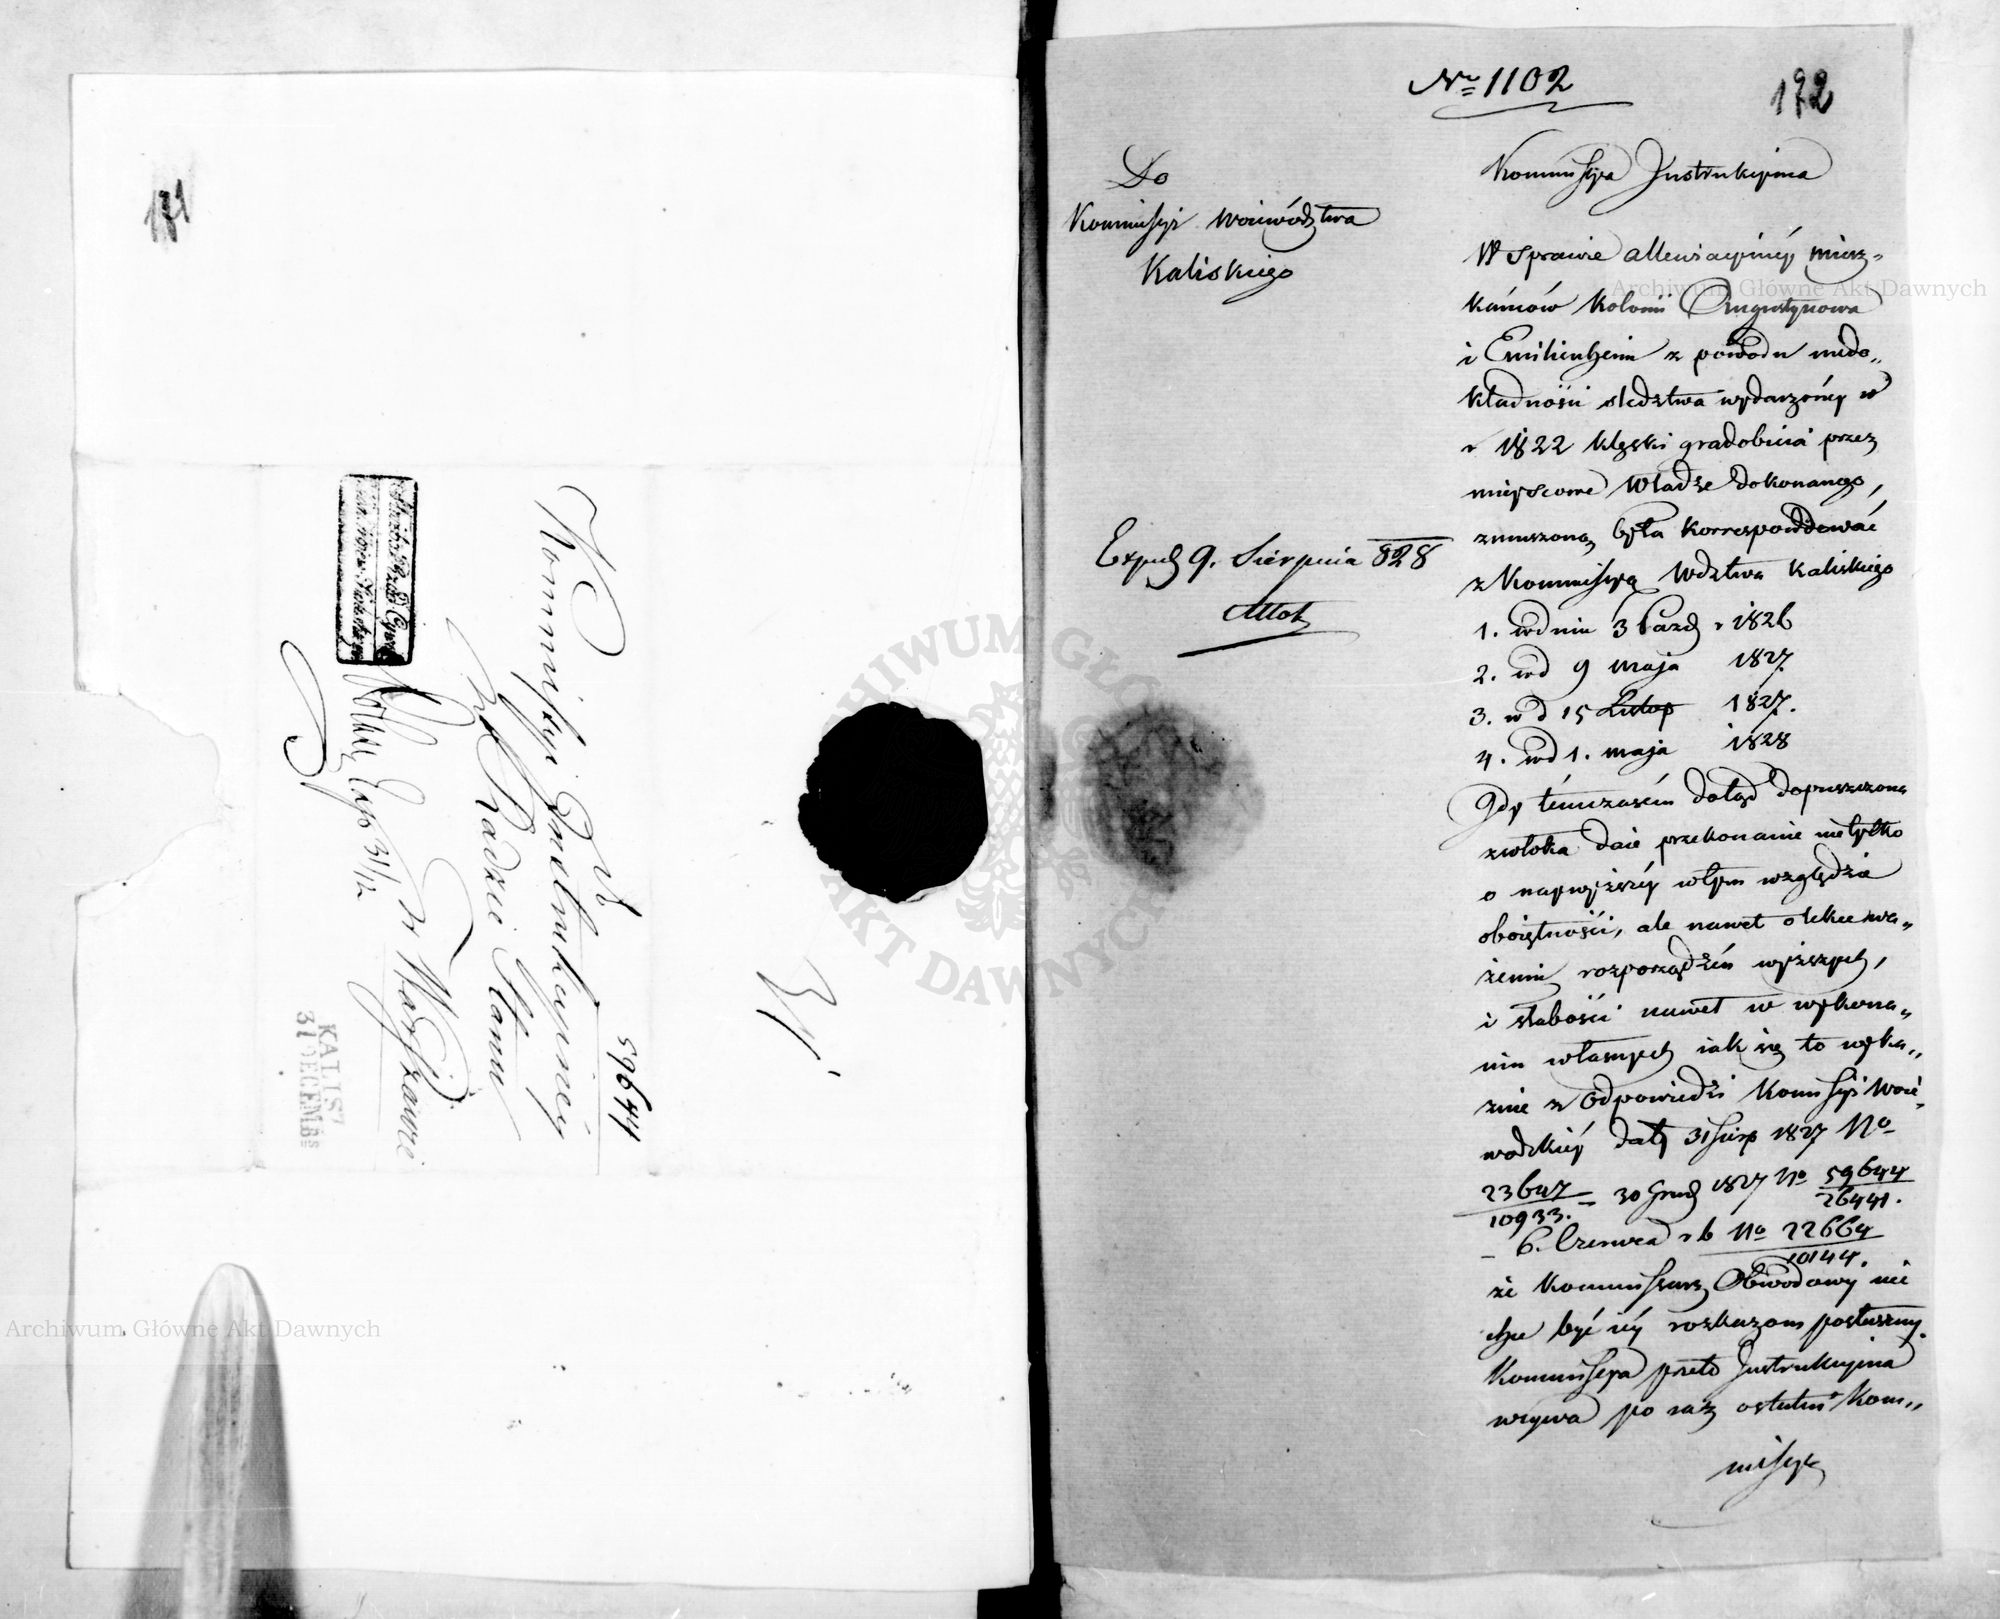 171
Kommissyi Instrukcyiney
przy Radzie Stanu
w Warszawie
59644
KALISZ
31 DECEMB
Nro 1102
172
Do
Kommissyi Woiewództwa
Kaliskiego
Exped 9. Sierpnia 828
Kommissya Instrukcyina
W sprawie allewiacyiney miesz-
kańców kolonii Augustynowa
i Emilienheim z powodu niedo-
kładności sledztwa wydarzoney w
r 1822 klęski gradobicia przez
mieyscowe Władze dokonanego,
zmuszoną była korrespondować
z Kommissyą Wdztwa Kaliskiego
1. w dniu 3 Pazd r 1826
2. w d 9 maja 1827
3. w d 15 Listop 1827.
4. w d 1. maja 1828
Gdy tymczasem dotąd dopuszczona
zwłoka daie przekonanie nietylko
o naywyższey w tym względzie
oboiętności, ale nawet o lekcewa-
żeniu rozporządzeń wyższych,
i słabości nawet w wykona-
niu własnych iak się to wyka-
zuie z odpowiedzi Kommissyi Woie-
wodzkiey daty 31 Sierp 1827 No
23647/10933. – 30 Grud 1827 No 59644/26441.
– 6. Czerwca r b No 22664/10144.
że Kommissarz Obwodowy nie
chce być iey rozkazom posłuszny.
Kommissya przeto Instrukcyina
wzywa po raz ostatni Kom-
missyę
Archiwum Główne Akt Dawnych
Archiwum Główne Akt Dawnych
ARCHIWUM GŁÓWNE AKT DAWNYCH